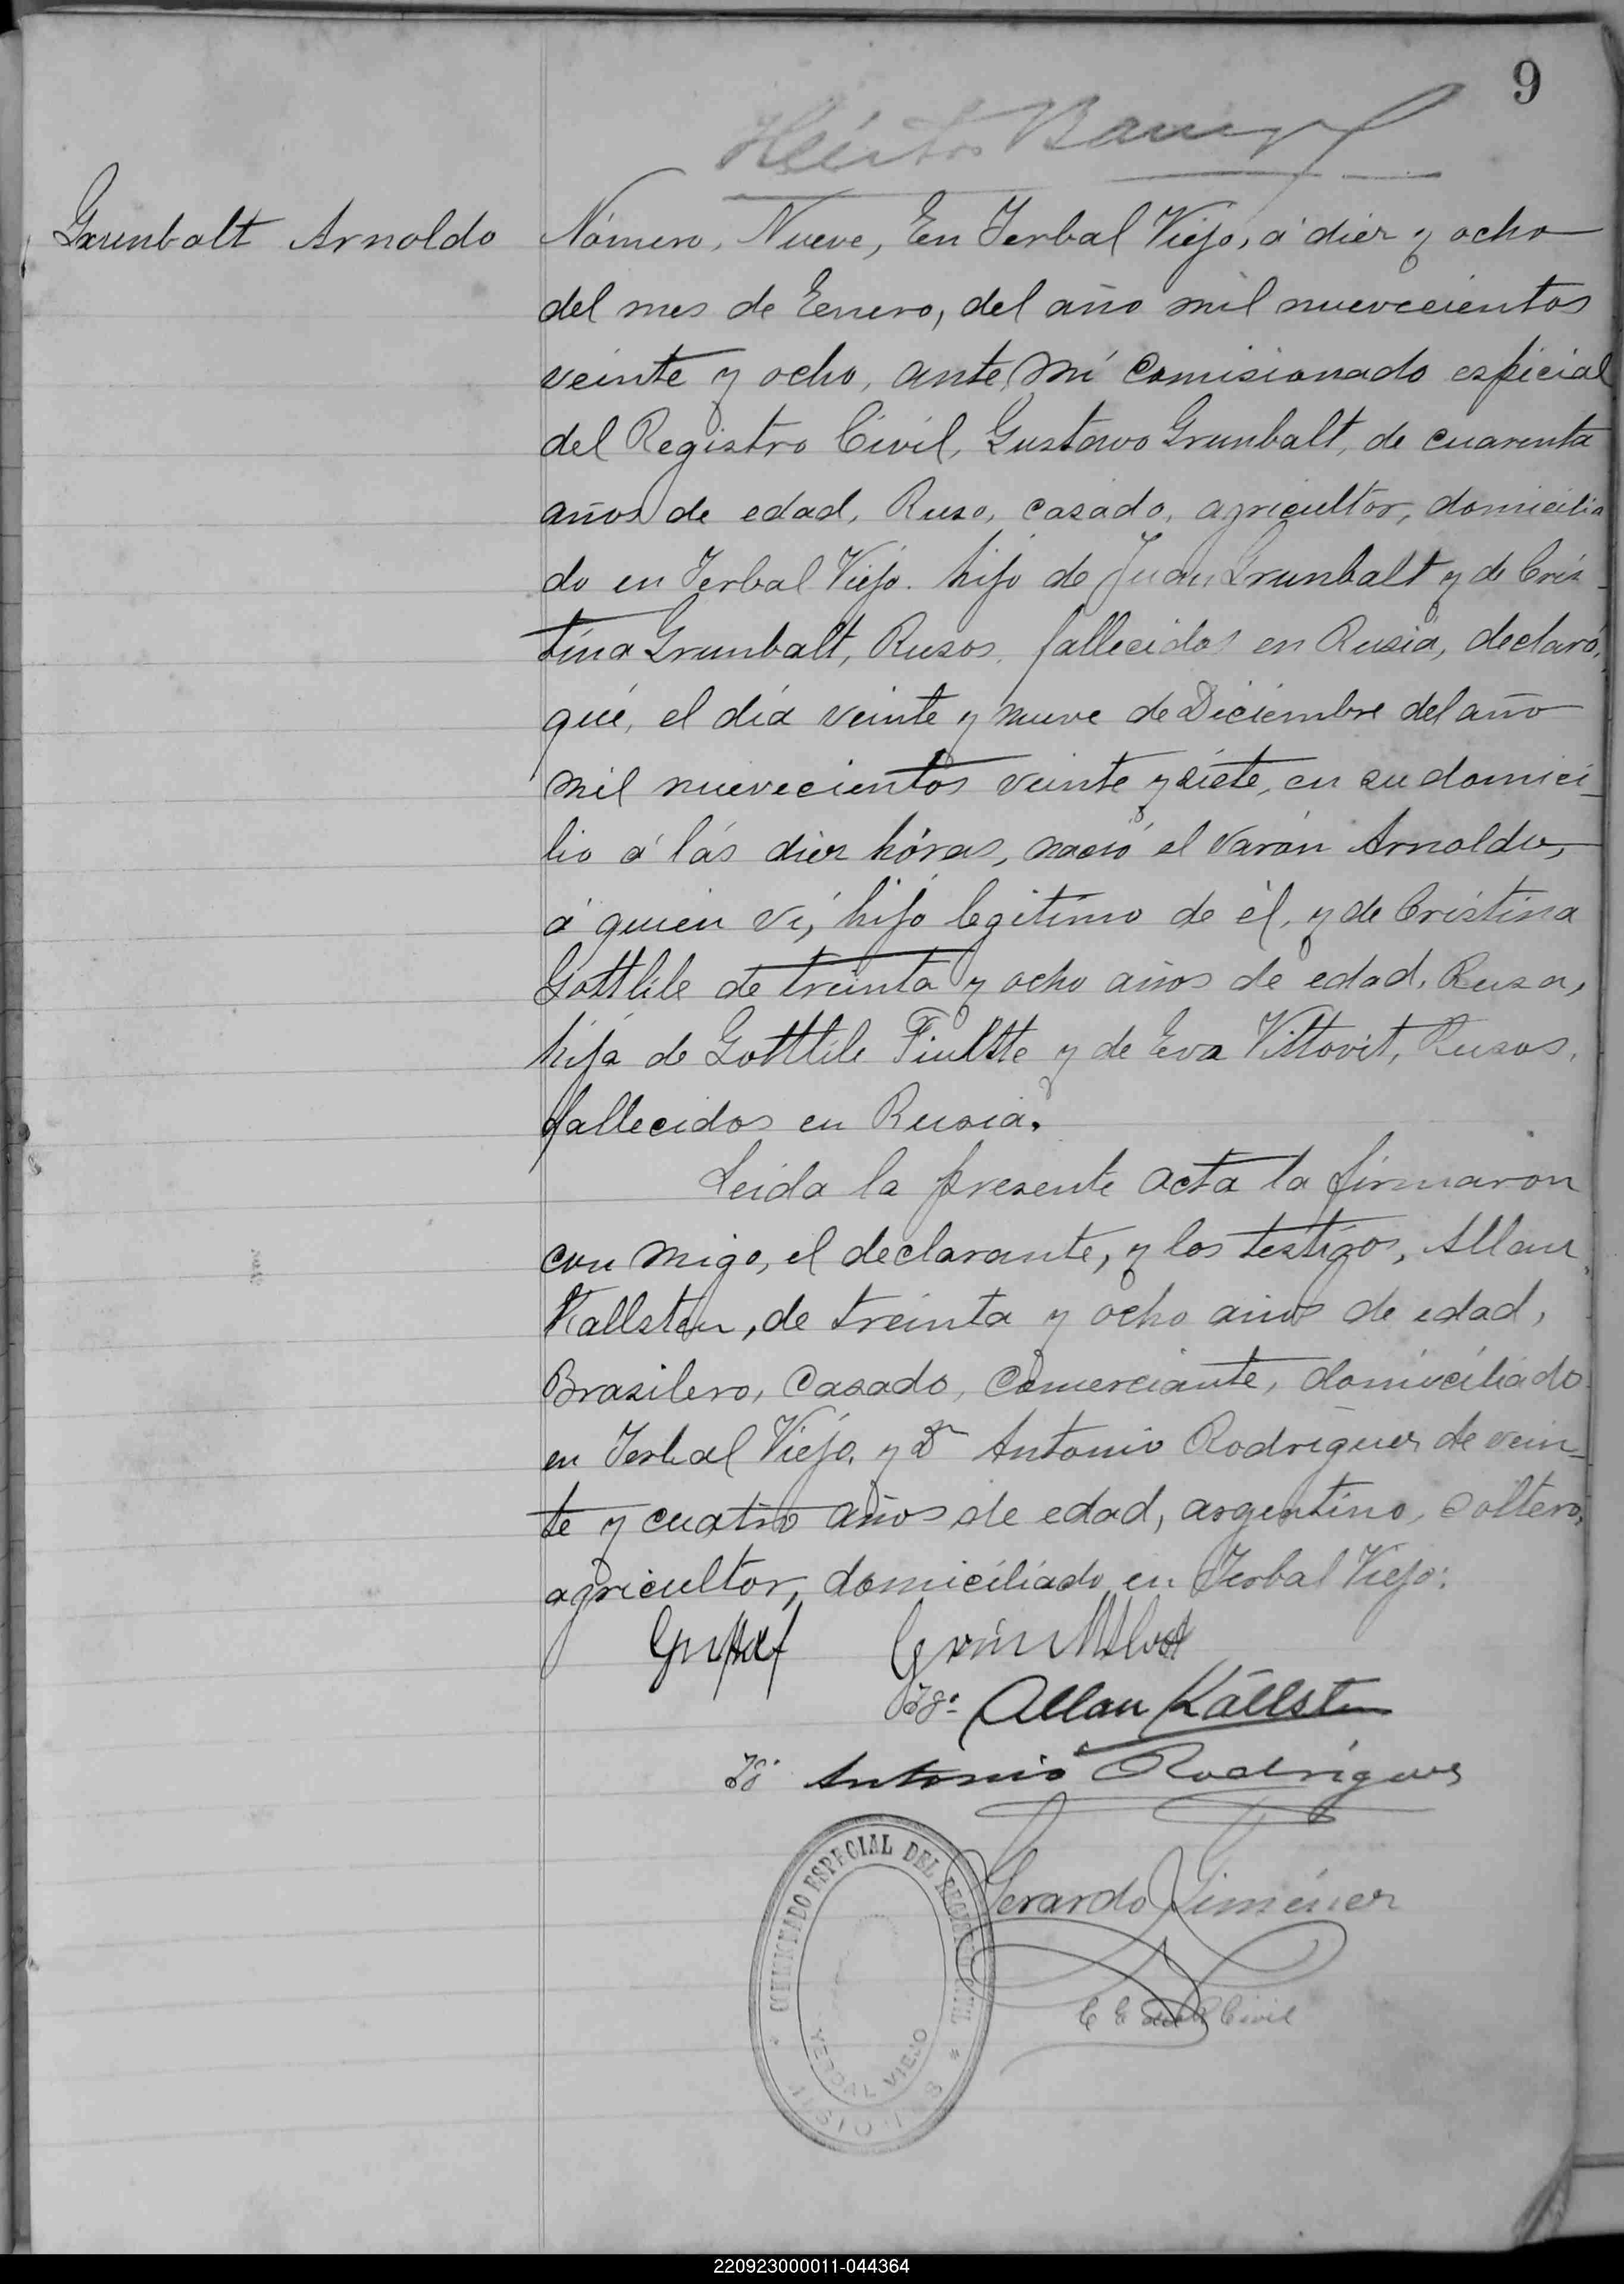 9
Héctor
Grunbalt Arnoldo
Número, Nueve, En Yerbal Viejo, á diez y ocho
del mes de Enero, del año mil nuevecientos
veinte y ocho, ante mí comisionado espicial
del Registro Civil, Gustavo Grunbalt, de cuarenta
años de edad, Ruso, casado, agricultor, domicilia
do en Yerbal Viejo. hijo de Juan Grunbalt y de Cris-
tina Grunbalt, Rusos, fallecidos en Rusia, declaró,
qué, el día veinte y nueve de Diciembre del año
mil nuevecientos veinte y siete, en su domici-
lio á lás diez hóras, nació el varón Arnoldo,
á quien ví, hijo legitimo de él, y de Cristina
Gottlile de treinta y ocho años de edad, Rusa,
hija de Gottlile y de Eva Vittovit, Rusos,
fallecidos en Rusia.
Leida la presente acta la firmaron
con migo, el declarante, y los testigos, Allan
Kallsten, de treinta y ocho años de edad,
Brasilero, casado, comerciante, domiciliado
en Yerbal Viejo, y Dn Antonio Rodriguez de vein-
te y cuatro años de edad, argentino, soltero,
agricultor, domiciliado en Yerbal Viejo:
Gustaf
Tgo. Allan Källsten
Tgo. Antonio Rodriguez
Gerardo Giménez
C E del R Civil
COMISIONADO ESPECIAL DEL REGISTRO CIVIL
YERBAL VIEJO
MISIONES
220923000011-044364